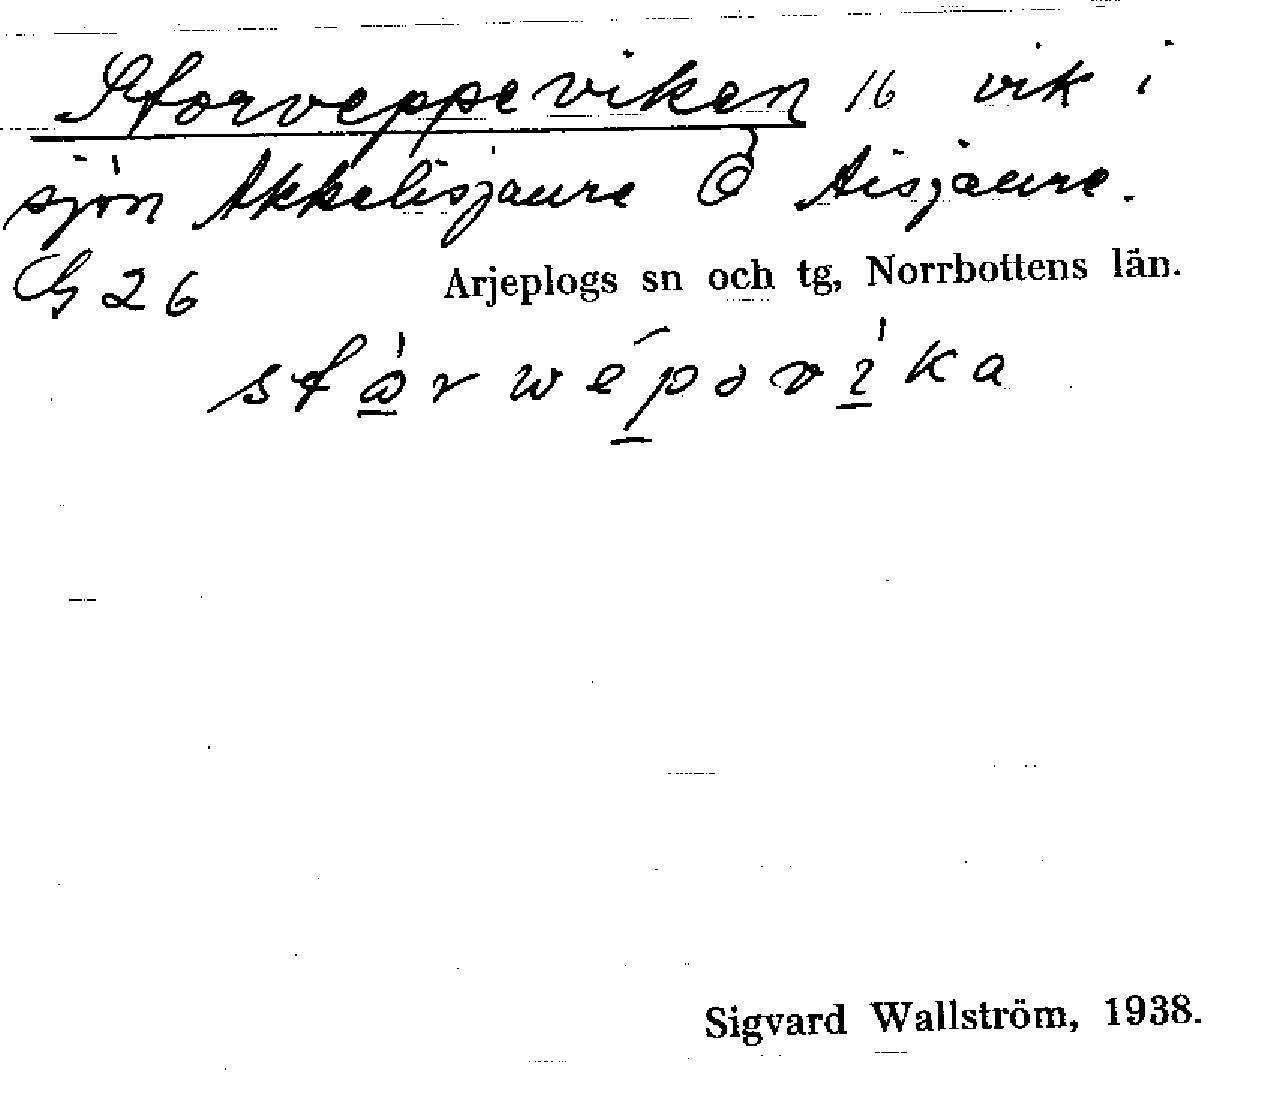 Storveppeviken 16 vik i
sjön Akkelisjaure Ö Aisjaure.
G 26 Arjeplogs sn och tg, Norrbottens län.
Sigvard Wallström, 1938.